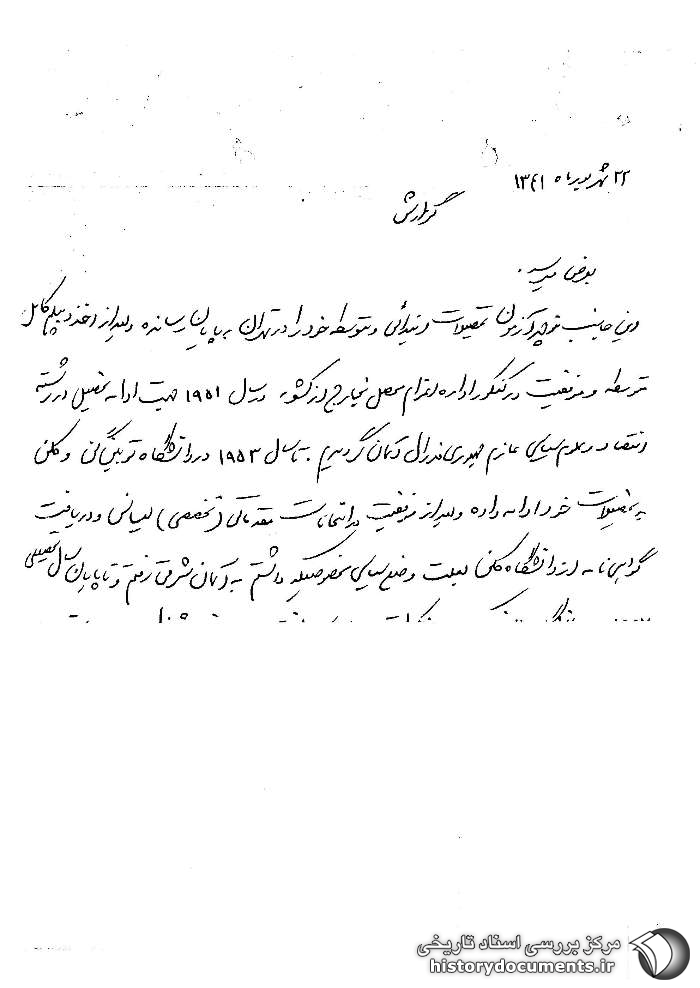 ۲۲ شهریور ماه ۱۳۴۱
گزارش
بعرض میرسد.
این جانب تحصیلات ابتدائی و متوسطه خود را در تهران به پایان رسانده و بعد از اخذ دیپلم کامل
متوسطه و موفقیت در کنکور اداره اعزام محصل بخارج از کشور در سال ۱۹۵۱ جهت ادامه تحصیل در رشته
اقتصاد و علوم سیاسی عازم جمهوری فدرال آلمان گردیدم. تا سال ۱۹۵۳ در دانشگاه توبینگن و کلن
به تحصیلات خود ادامه داده و بعد از موفقیت در امتحانات مقدماتی (تخصصی) لیسانس و دریافت
گواهی نامه از دانشگاه کلن بعلت وضع سیاسی مخصوصیکه داشتم به آلمان شرقی رفتم و تا پایان سال تحصیلی
مرکز بررسی اسناد تاریخی
historydocuments.ir